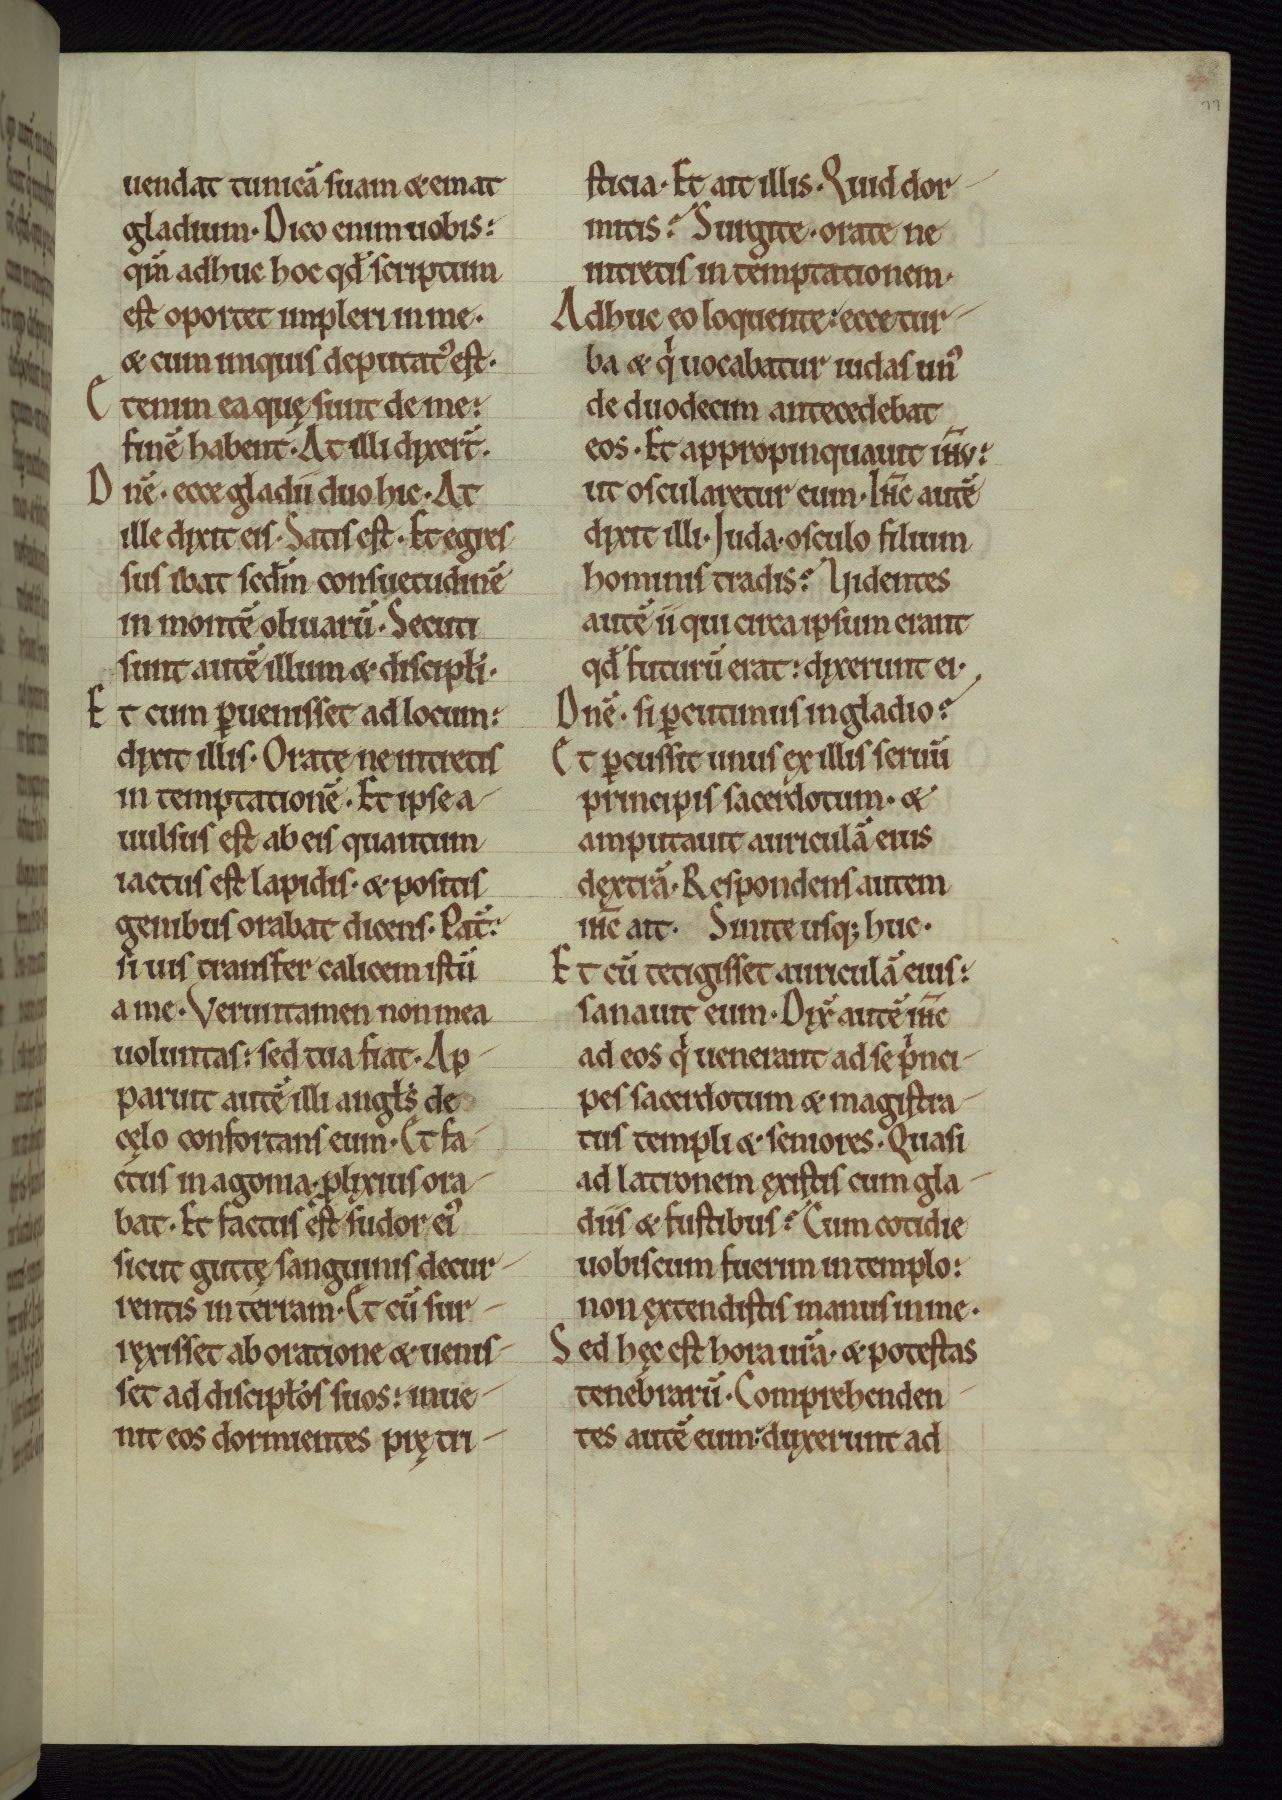 77
uendat tunicā suam & emat
gladium. Dico enim uobis:
qm̄ adhuc hoc qd̄ scriptum
est oportet impleri in me.
& cum iniquis deputat᾽ est.
Etenim ea quę sunt de me:
finē habent. At illi dixer̄t.
Dn̄e. ecce gladii duo hic. At
ille dixit eis. Satis est. Et egres
sus ibat sed̄m consuetudinē
in montē oliuarū. Secuti
sunt autē illum & discipli.
Et cum ꝑuenisset ad locum:
dixit illis. Orate ne intretis
in temptationē. Et ipse a-
uulsus est ab eis quantum
iactus est lapidis. & positis
genibus orabat dicens. Pat̄:
si uis transfer calicem istū
a me. Veruntamen non mea
uoluntas: sed tua fiat. Ap-
paruit autē illi angłs de
cęlo confortans eum. Et fa-
ctus in agonia. ꝓlixius ora-
bat. Et factus est sudor ei᾽
sicut guttę sanguinis decur-
rentis in terram. Et cū sur-
rexisset ab oratione & uenis-
set ad discipłos suos: inue-
nit eos dormientes prę tri-
sticia. Et ait illis. Quid dor-
mitis? Surgite. orate ne
intretis in temptationem.
Adhuc eo loquente: ecce tur-
ba & qͥ uocabatur iudas un᾽
de duodecim antecedebat
eos. Et appropinquauit ih̄u:
ut oscularetur eum. Ih̄c autē
dixit illi. Juda. osculo filium
hominis tradis? Videntes
autē ii qui circa ipsum erant
qd̄ futurū erat: dixerunt ei.
Dn̄e. si ꝑcutimus in gladio?
Et ꝑcussit unus ex illis seruū
principis sacerdotum. &
amputauit auriculā eius
dextrā. Respondens autem
ih̄c ait. Sinite usq; huc.
Et cū tetigisset auriculā eius:
sanauit eum. Dix̄ autē ih̄c
ad eos qͥ uenerant ad se pͥnci-
pes sacerdotum & magistra-
tus templi & seniores. Quasi
ad latronem existis cum gla-
diis & fustibus? Cum cotidie
uobiscum fuerim in templo:
non extendistis manus in me.
Sed hęc est hora ur̄a. & potestas
tenebrarū. Comprehenden-
tes autē eum: duxerunt ad